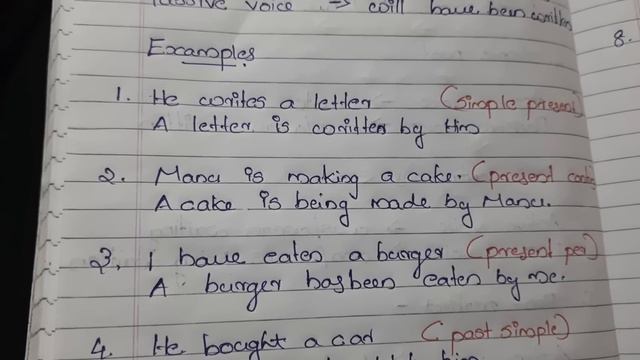 Passive voice → will have been written
8.
Examples
1. He writes a letter (simple present
A letter is written by Him
2. Manu is making a cake. (present conti
A cake is being made by Manu.
3. I have eaten a burger (present per)
A burger has been eaten by me.
4. He bought a car (past simple)
him